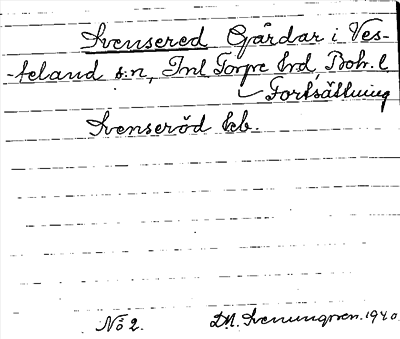 Svensered Gårdar i Ves-
-teland s:n, Inl Torpe hrd, Boh. l.
Fortsättning
Svenseröd kb.
No 2. DN. Svenungsson. 1940.